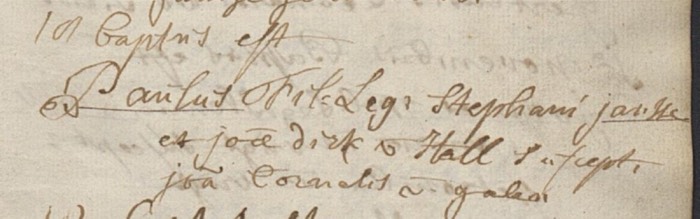 18 baptus est
Paulus Fil: Leg: Stephani janße
et joæ dirk v Hall Suscept.
joã Cornelis v. galen